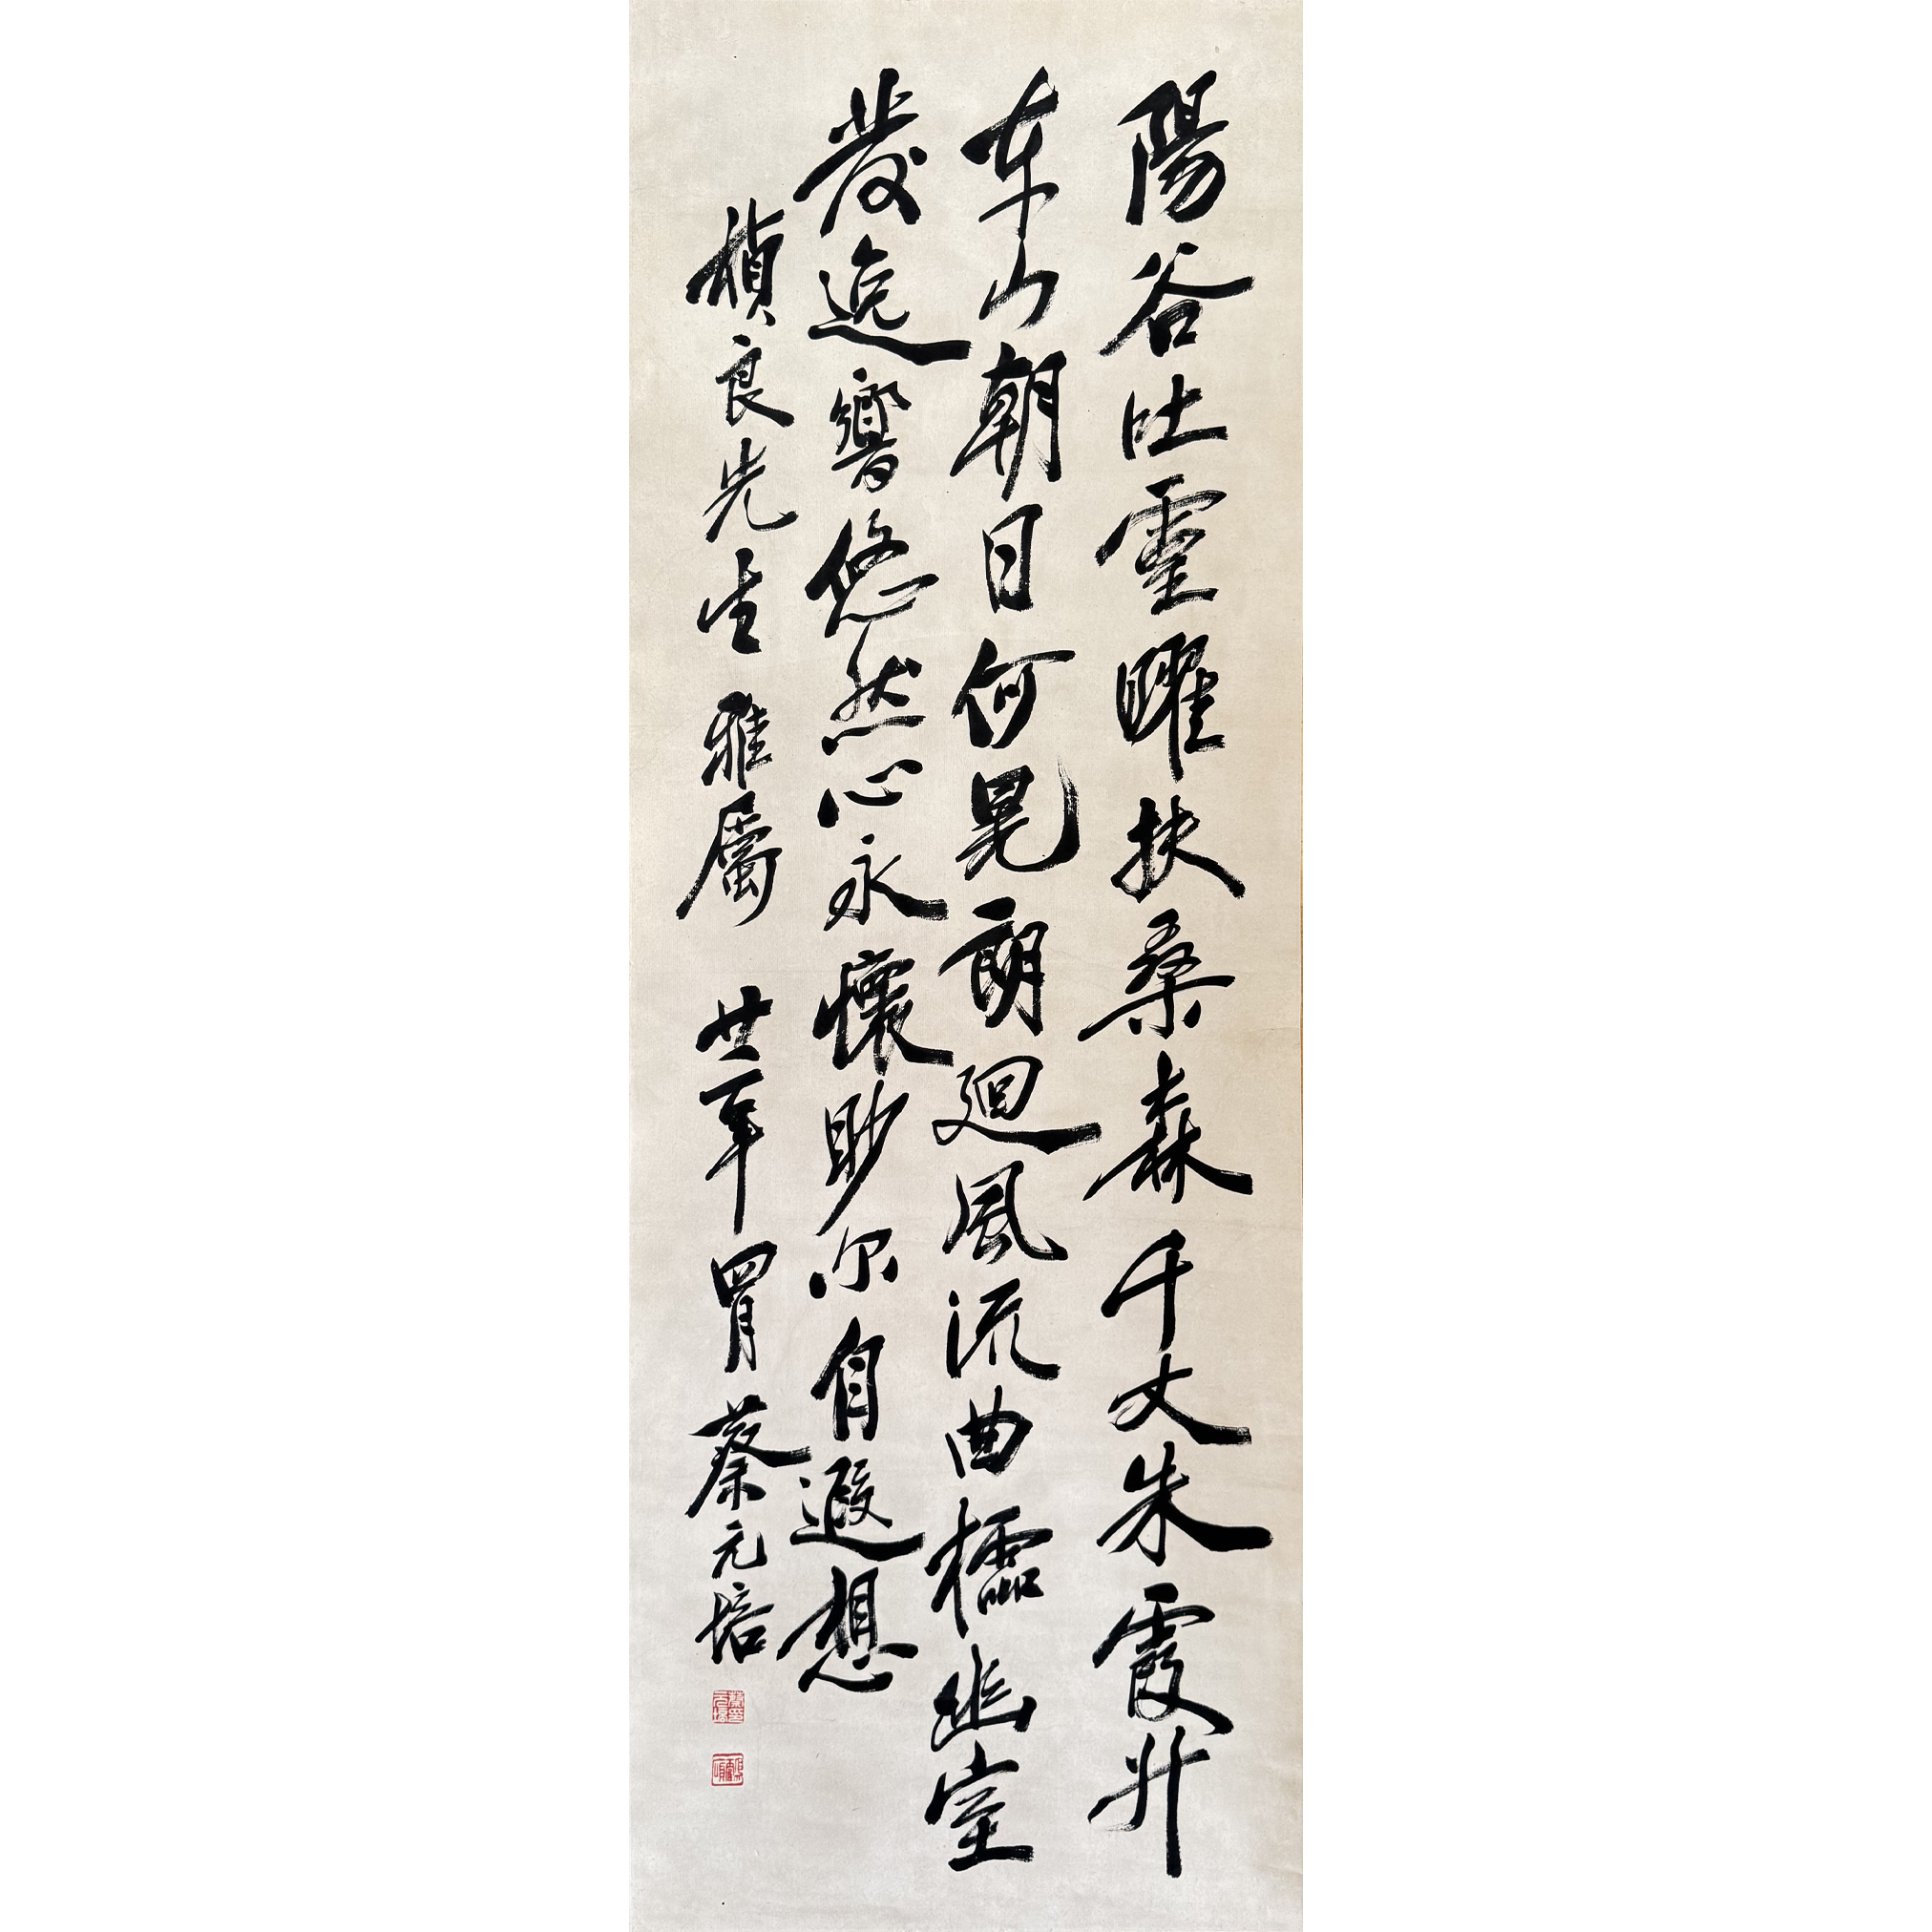 陽谷吐靈曜扶桑森千丈朱霞升
东山朝日何晃朗迴風流曲櫺幽室
發逸響悠然心永懷眇尔自遐想
楨良先生 雅屬 廿年四月 蔡元培
蔡元培印